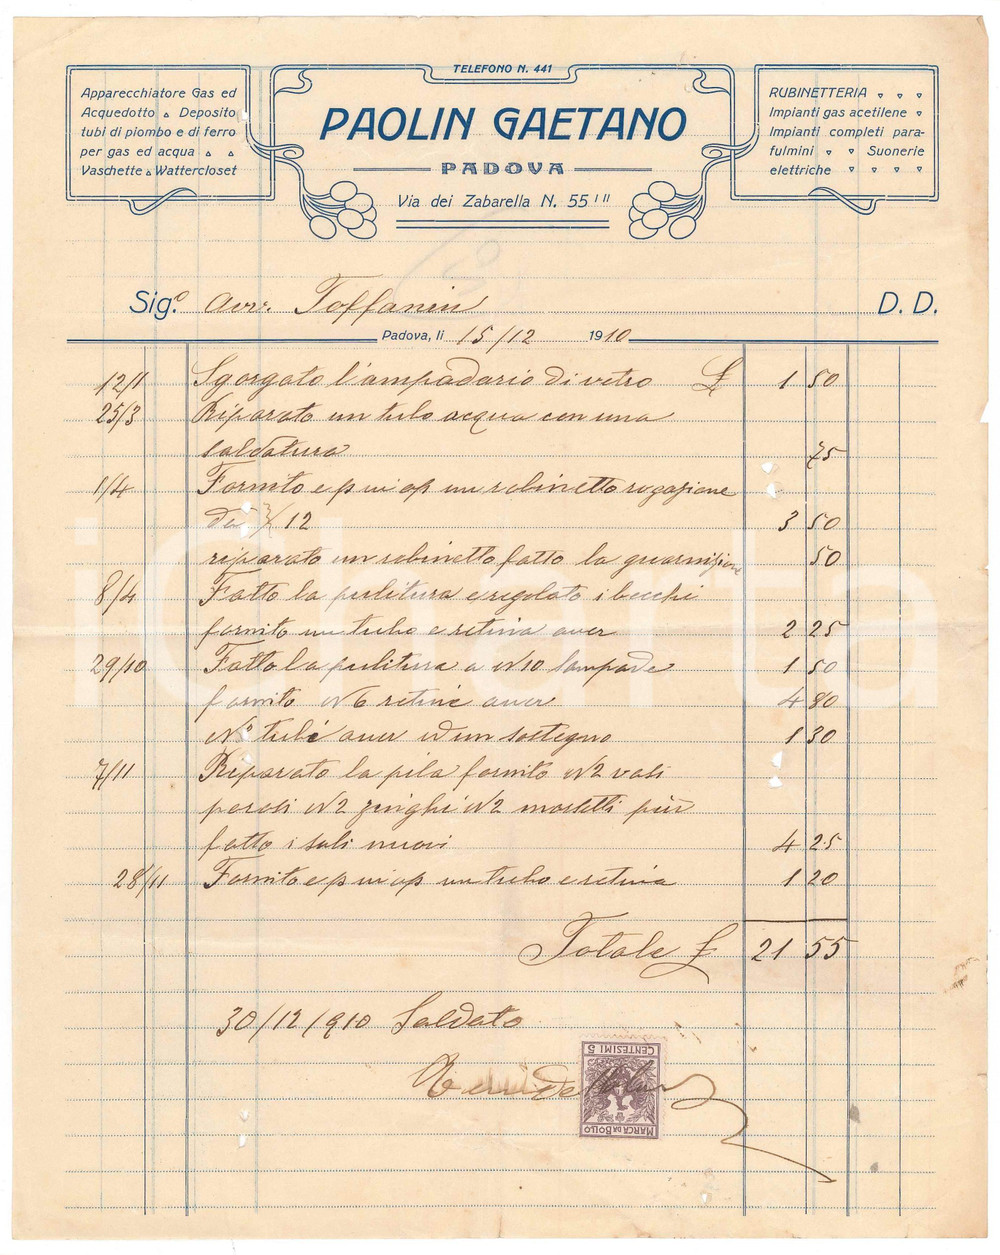 TELEFONO N. 441
Apparecchiatore Gas ed
Acquedotto Deposito
tubi di piombo e di ferro
per gas ed acqua
Vaschette Wattercloset
PAOLIN GAETANO
PADOVA
Via dei Zabarella N. 55 I II
RUBINETTERIA
Impianti gas acetilene
Impianti completi para-
fulmini Suonerie
elettriche
Sig.o Avv. Toffanin D. D.
Padova, li 15/12 1910
12/1 Sgorgato l'ampadario di vetro £ 1 50
25/3 Riparato un tubo acqua con una
saldatura 75
1/4 Fornito e p in op un robinetto
di 12 3 50
riparato un robinetto fatto la guarnizione 50
8/4 Fatto la pulitura e regolato i becchi
fornito un tubo e retina auer 2 25
29/10 Fatto la pulitura a N 10 lampade 1 50
fornito N 6 retine auer 4 80
tubi auer ed un sostegno 1 30
7/11 Riparato la pila fornito N 2 vasi
porosi N 2 zinghi N 2 morsetti più
fatto i sali nuovi 4 25
28/11 Fornito e p in op un tubo e retina 1 20
Totale £ 21 55
30/12/910 Saldato
CENTESIMI 5
MARCA DA BOLLO
iCharta